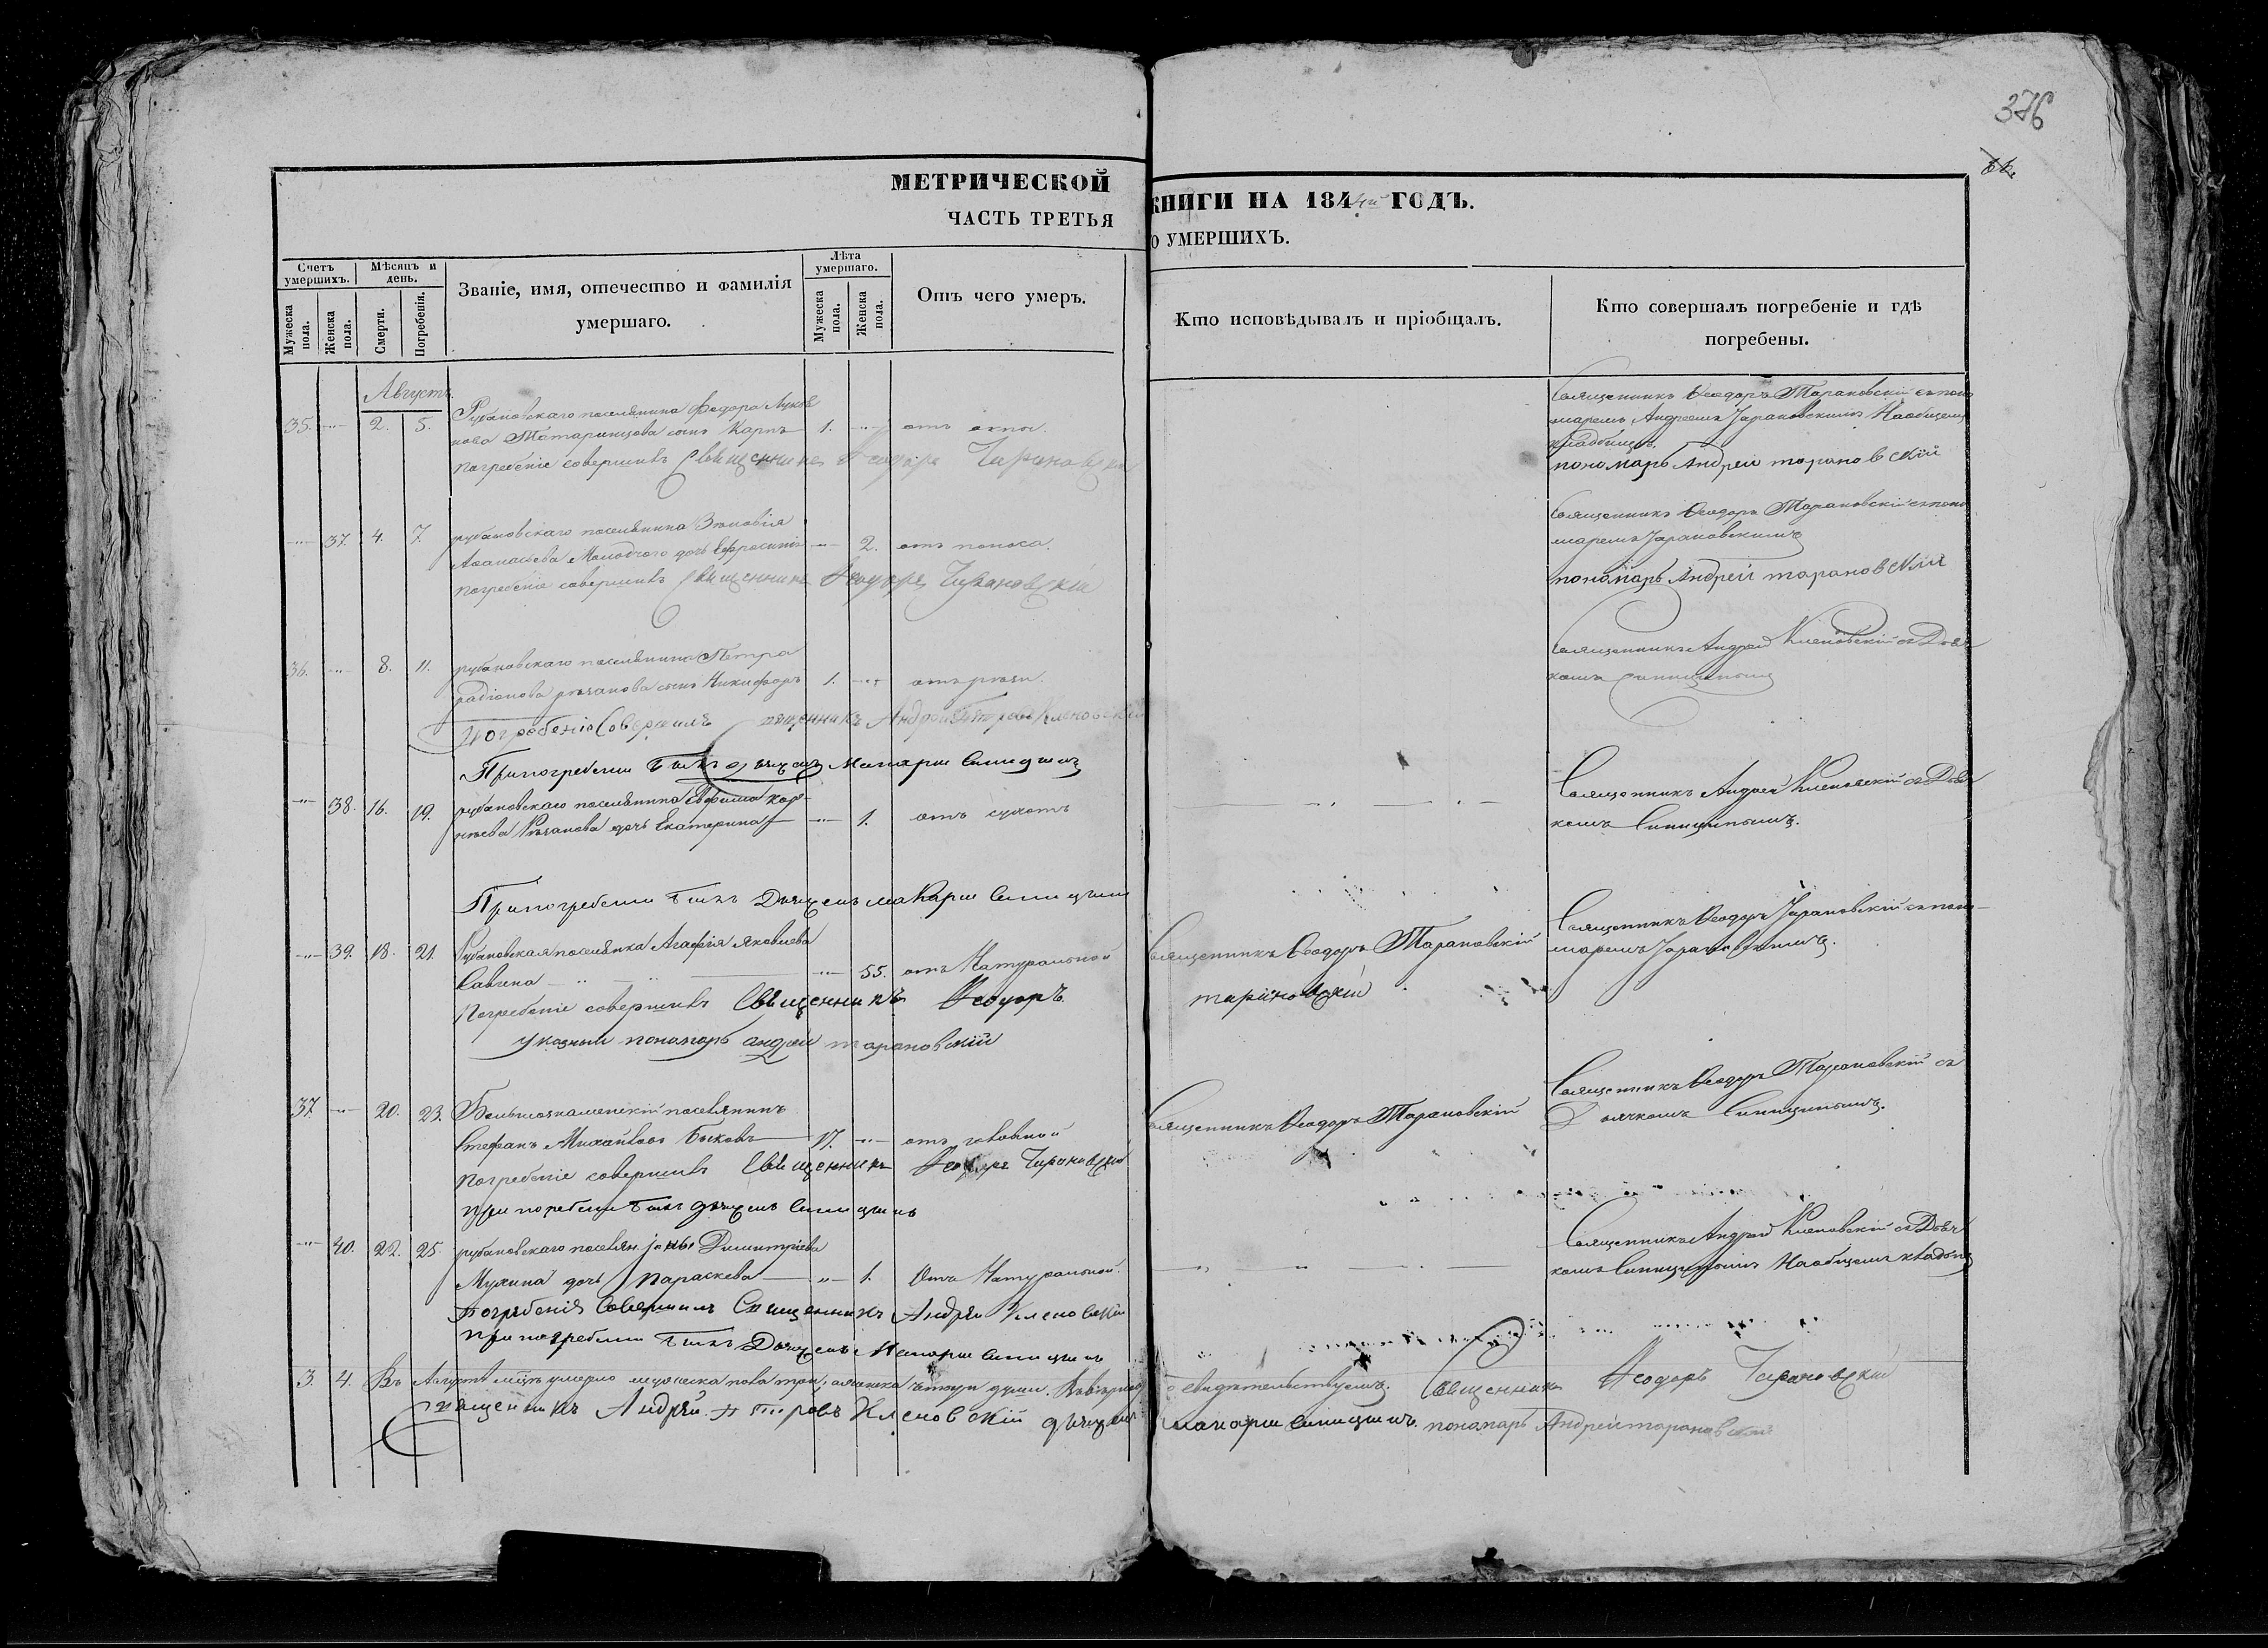 376
МЕТРИЧЕСКОЙ КНИГИ НА 1844й ГОДЪ.
ЧАСТЬ ТРЕТЬЯ О УМЕРШИХЪ.
Счетъ умершихъ.
Мужеска пола.
Женска пола.
Мѣсяцъ и день.
Смерти.
Погребенія.
Званіе, имя, отечество и фамилія
умершаго.
Лѣта умершаго.
Мужеска пола.
Женска пола.
Отъ чего умеръ.
Кто исповѣдывалъ и пріобщалъ.
Кто совершалъ погребеніе и гдѣ
погребены.
Августъ.
35. 2. 5. Рубановскаго поселянина Федора
сынъ Карпъ 1. отъ оспы.
Погребеніе совершивъ Священникъ Феодоръ Тарановскій
Священникъ Феодоръ Тарановскій съ поно
маремъ Андреемъ Тарановскимъ На общемъ
кладбищѣ.
пономарь Андрей тарановскій
37. 4. 7. рубановскаго поселянина Зѣновія
Аѳанасьева дочь Ефросинія 2. отъ поноса.
погребеніе совершивъ Священникъ Феодоръ Тарановскій
Священникъ Феодоръ Тарановскій съ поно
маремъ Тарановскимъ
пономарь Андрей тарановскій
36. 8. 11. рубановскаго поселянина Петра
радіонова сынъ Никифоръ 1.
Погребеніе Совершилъ священникъ Андрей Петровъ Кленовскій
При погребеніи былъ дьячекъ Макарій Синицынъ
Священникъ Андрей Кленовскій съ Дьяч
комъ Синицынымъ
38. 16. 19. рубановскаго поселянина Ефима кор-
нѣева дочь Екатерина 1. отъ сухотъ
При погребеніи былъ Дьячекъ Макарій Синицынъ
Священникъ Андрей Кленовскій съ Дьяч
комъ Синицынымъ.
39. 18. 21. Рубановская поселянка Агафія Яковлева
Савгена 55. отъ Натуральной
Погребеніе совершивъ Священникъ Феодоръ
тарановскій
указный пономарь андрей тарановскій
Священникъ Феодоръ Тарановскій
Священникъ Феодоръ Тарановскій съ поно-
маремъ Тарановскимъ.
37. 20. 23. Большознаменскій поселянинъ
Стефанъ Михайловъ Быковъ 17. отъ головной
Погребеніе совершивъ Священникъ Феодоръ Тарановскій
при погребеніи былъ дьячекъ Синицынъ
Священникъ Феодоръ Тарановскій
Священникъ Феодоръ Тарановскій съ
Дьячкомъ Синицынымъ.
40. 22. 25. рубановскаго поселян. Димитріева
Мухина дочь Параскева 1. Отъ Натуральной.
Погребенія Совершилъ Священникъ Андрей Кленовскій
при погребеніи былъ Дьячекъ Макарій Синицынъ
Священникъ Андрей Кленовскій съ Дьяч
комъ Синицынымъ На общемъ кладбищ
3. 4. Въ Августѣ мцѣ умерло мужеска пола три, а женска четыри души. свидѣтельствуемъ. Священникъ Феодоръ Тарановскій
священникъ Андрей Петровъ Кленовскій дьячекъ макарій Синицынъ. пономарь Андрей тарановскій